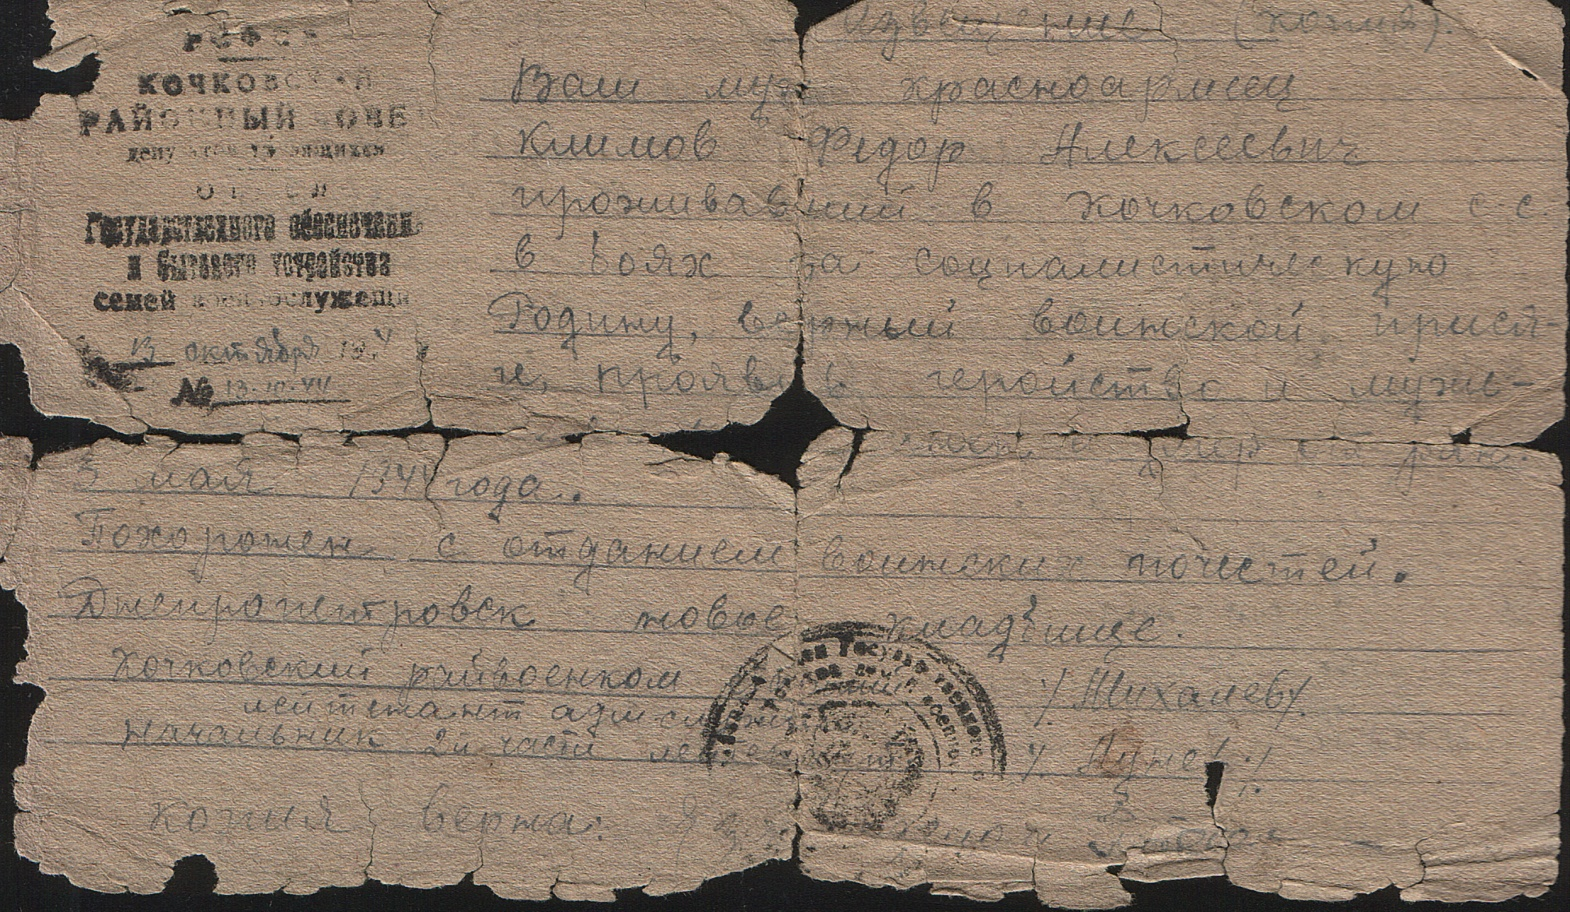 РСФСР
КОЧКОВСКИЙ
РАЙОННЫЙ СОВЕТ
депутатов трудящихся
ОТДЕЛ
Государственного обеспечения
и бытового устройства
семей военнослужащих
13 октября 194
№ 13-
Извещение (копия).
Ваш муж красноармеец
Климов Федор Алексеевич
проживавший в Кочковском с-с
в боях за социалистическую
Родину, верный воинской прися-
ге, проявив геройство и муже-
умер от ран
3 мая 1944 года.
Похоронен с отданием воинских почестей.
Днепропетровск новые кладбище.
Кочковский райвоенком
лейтенант адм службы /Михалев/
Начальник 2й части лейтенант
копия верна: